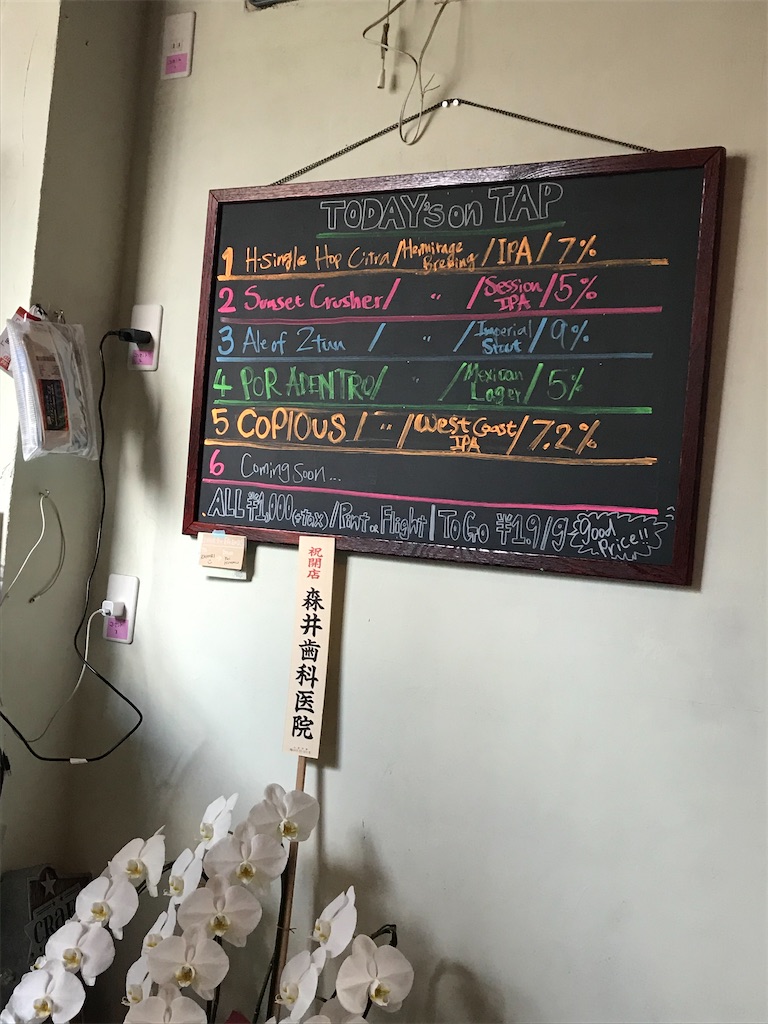 TODAY's on TAP
1 H-Single Hop Citra / Hermitage Brewing / IPA / 7%
2 Sunset Crusher / 〃 / Session IPA / 5%
3 Ale of 2tun / 〃 / Imperial Stout / 9%
4 POR ADENTRO / 〃 / Mexican Lager / 5%
5 COPIOUS / 〃 / West Coast IPA / 7.2%
6 Coming Soon...
ALL ¥1,000 (+tax) / Pint or Flight | To Go ¥1.9/g Good Price!!
祝開店
森井歯科医院
CRA